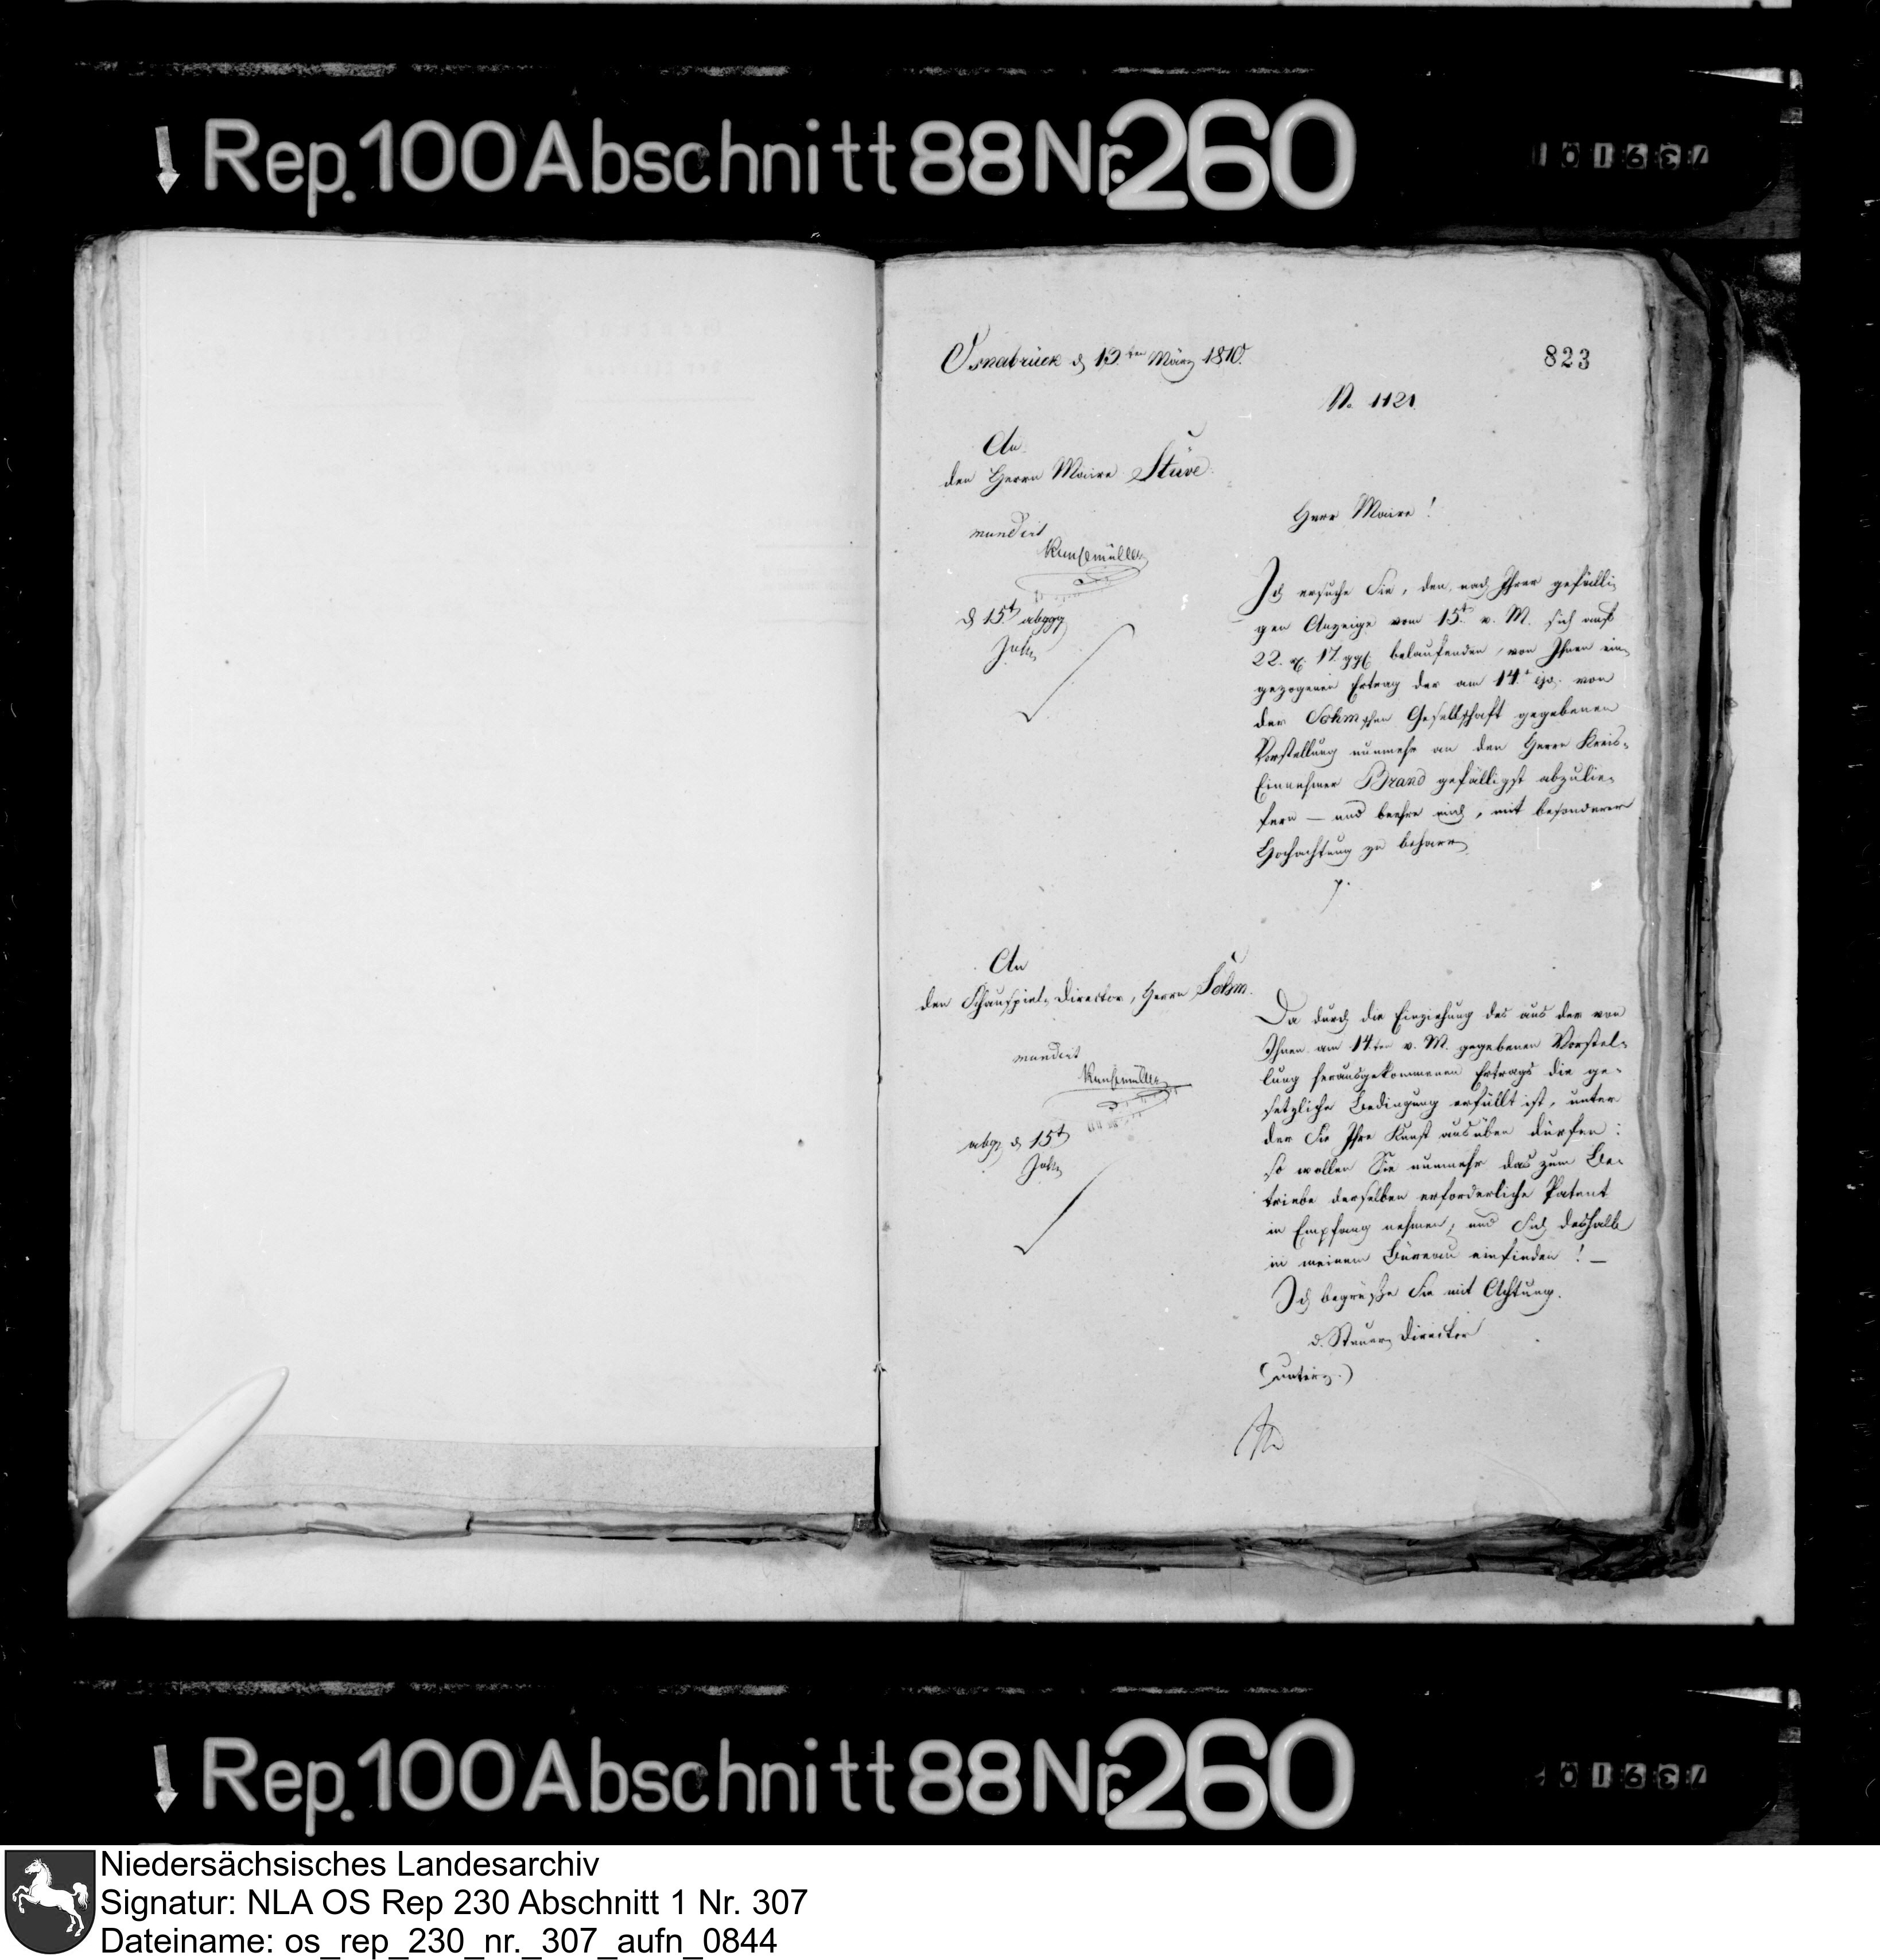 Rep. 100 Abschnitt 88 Nr. 260
Osnabrück d 13ten März 1810.
823
N. 1121
An
den Herrn Maire Stüve.
mundirt
Kunsemüller
d 15t abgg
Herr Maire!
Ich ersuche Sie, den, nach Ihrer gefälli-
gen Anzeige vom 15t v. M. sich auf
22. rt. 17. ggl belaufenden, von Ihnen ein-
gezogenen Ertrag der am 14t ejd. von
der Sohmschen Gesellschaft gegebenen
Vorstellung nunmehr an den Herrn Kreis-
Einnehmer Brand gefälligst abzulie-
fern — und beehre mich, mit besonderer
Hochachtung zu beharren
An
den Schauspiel-Director, Herrn Sohm.
mundirt
Kunsemüller
abg. d 15t
Da durch die Einziehung des aus der von
Ihnen am 14ten v. M. gegebenen Vorstel-
lung herausgekommenen Ertrags die ge-
setzliche Bedingung erfüllt ist, unter
der Sie Ihre Kunst ausüben dürfen:
so wollen Sie nunmehr das zum Be-
triebe derselben erforderliche Patent
in Empfang nehmen, und Sich deshalb
in meinem Büreau einfinden! —
Ich begrüße Sie mit Achtung.
d. Steuer-Director
(unterz.)
Rep. 100 Abschnitt 88 Nr. 260
Niedersächsisches Landesarchiv
Signatur: NLA OS Rep 230 Abschnitt 1 Nr. 307
Dateiname: os_rep_230_nr._307_aufn_0844